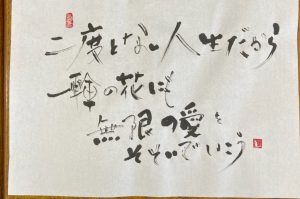 二度とない人生だから
一輪の花にも
無限の愛を
そそいでいこう